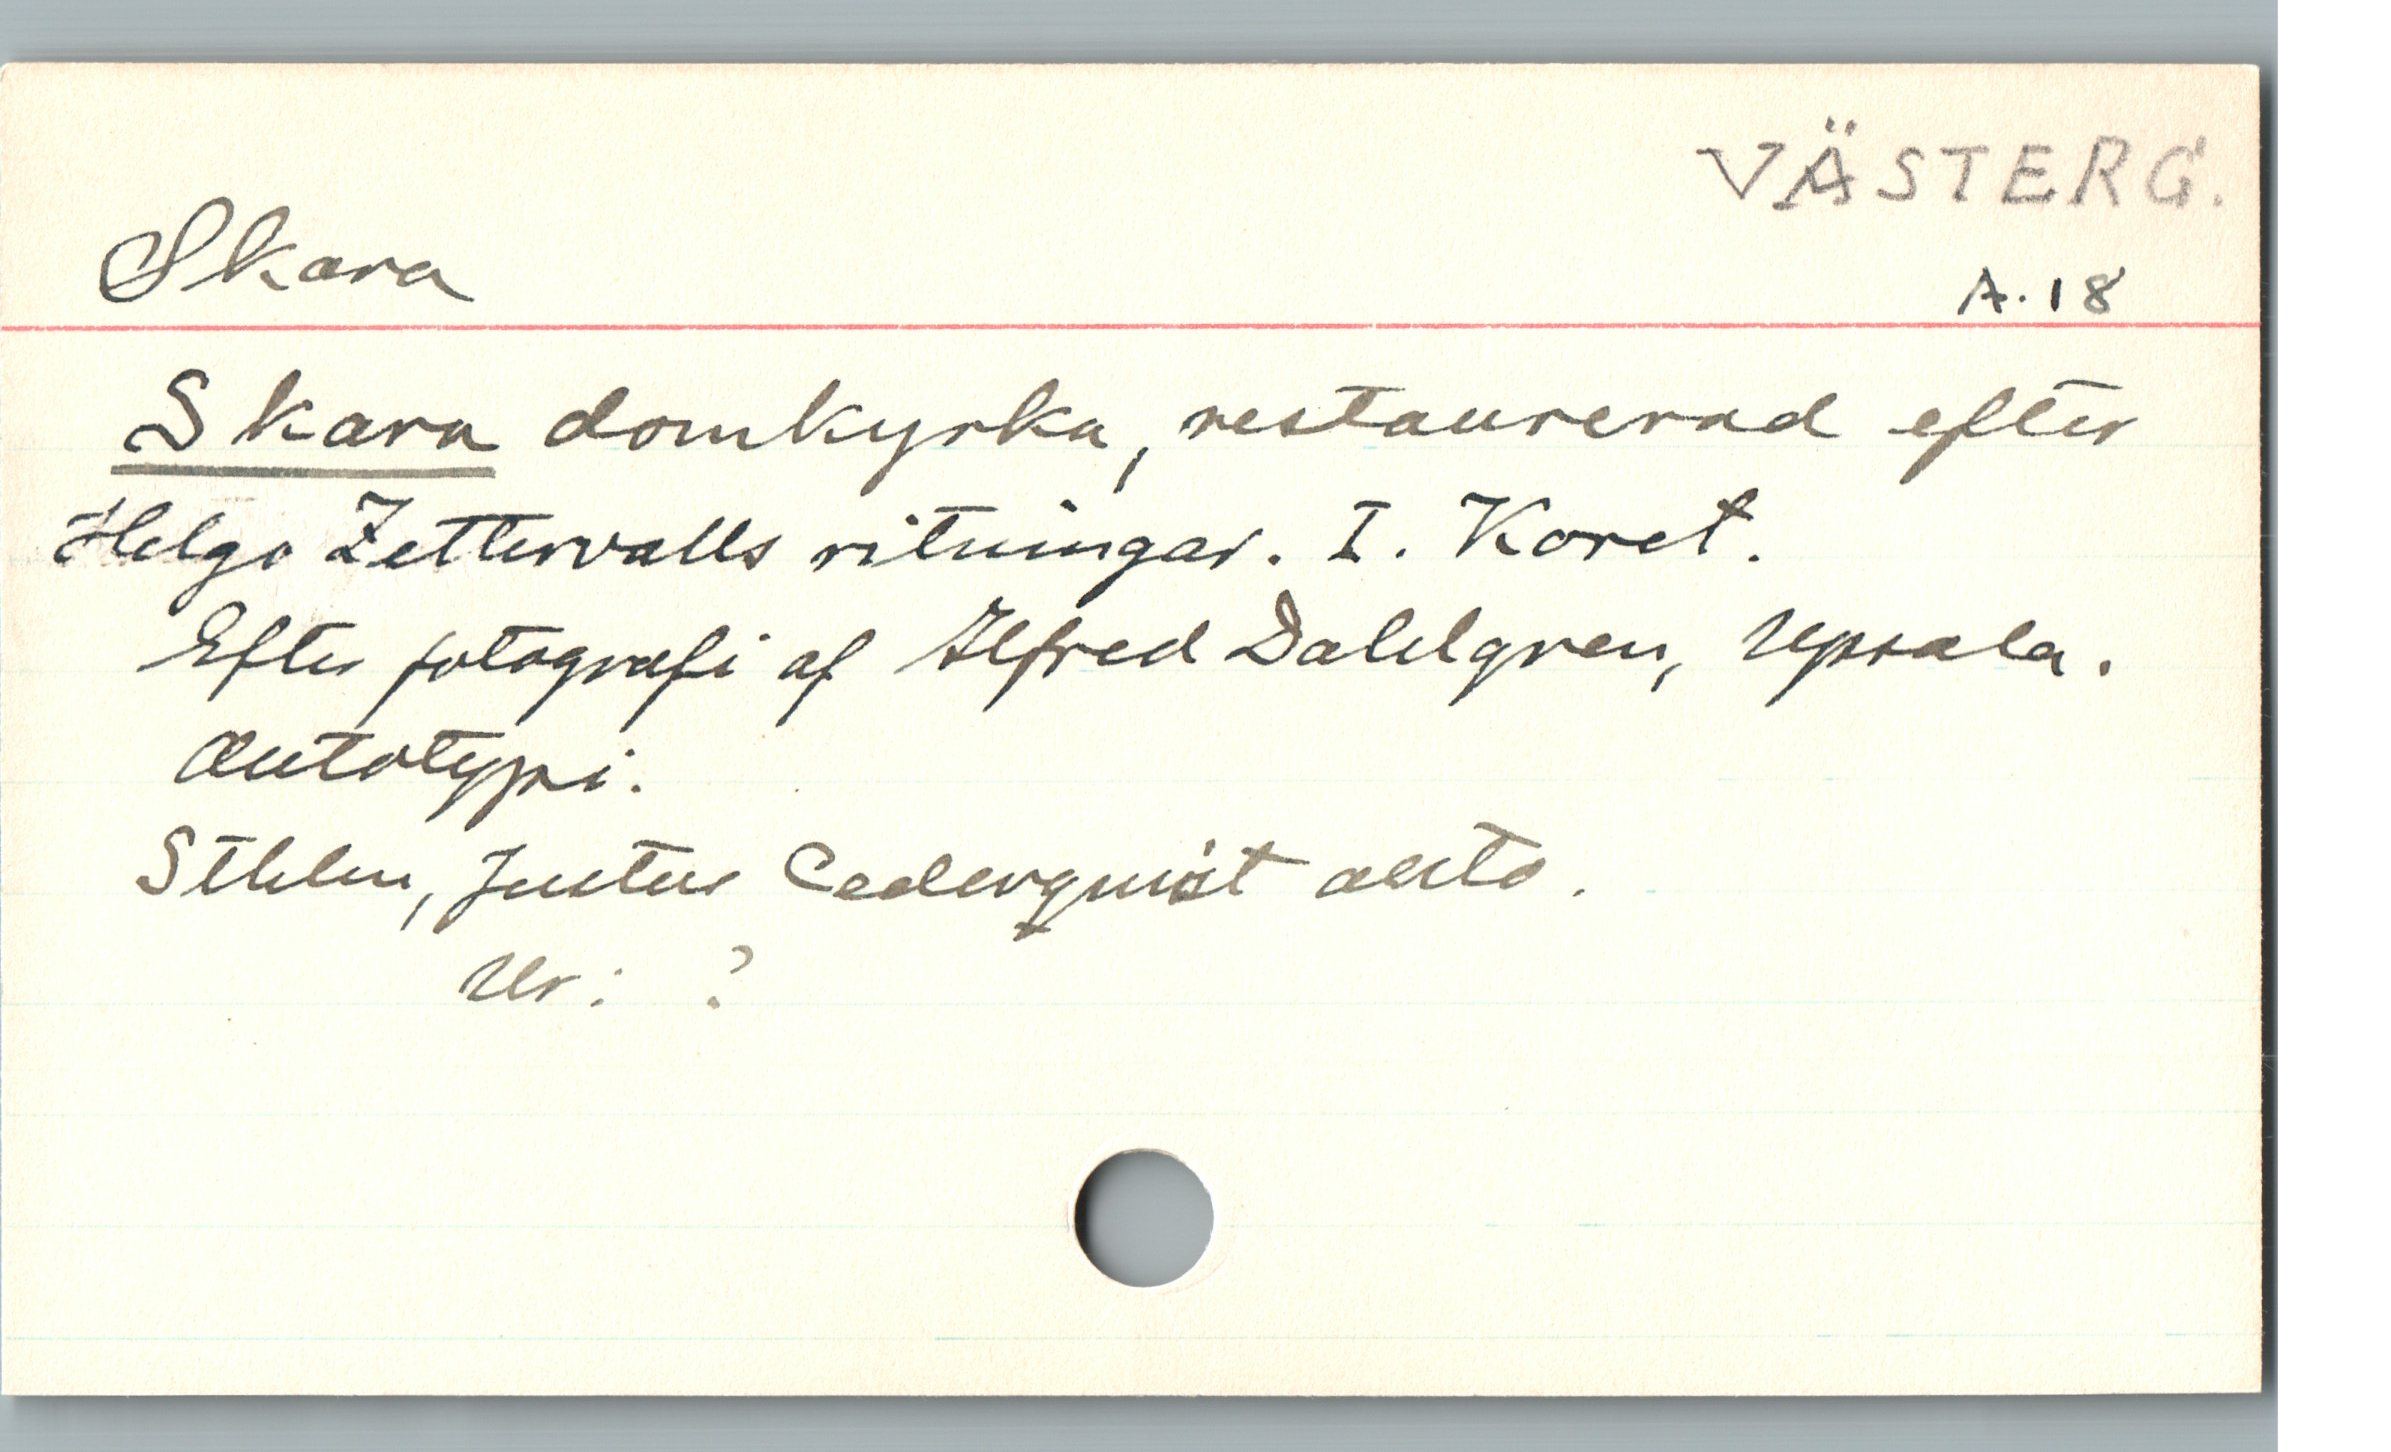 VÄSTERG.
Skara
A.18
Skara domkyrka, restaurerad efter
Helgo Zettervalls ritningar. I. Koret.
Efter fotografi af Alfred Dahlgren, Upsala.
Autotypi.
Sthlm, Justus Cederquist auto.
Ur: ?